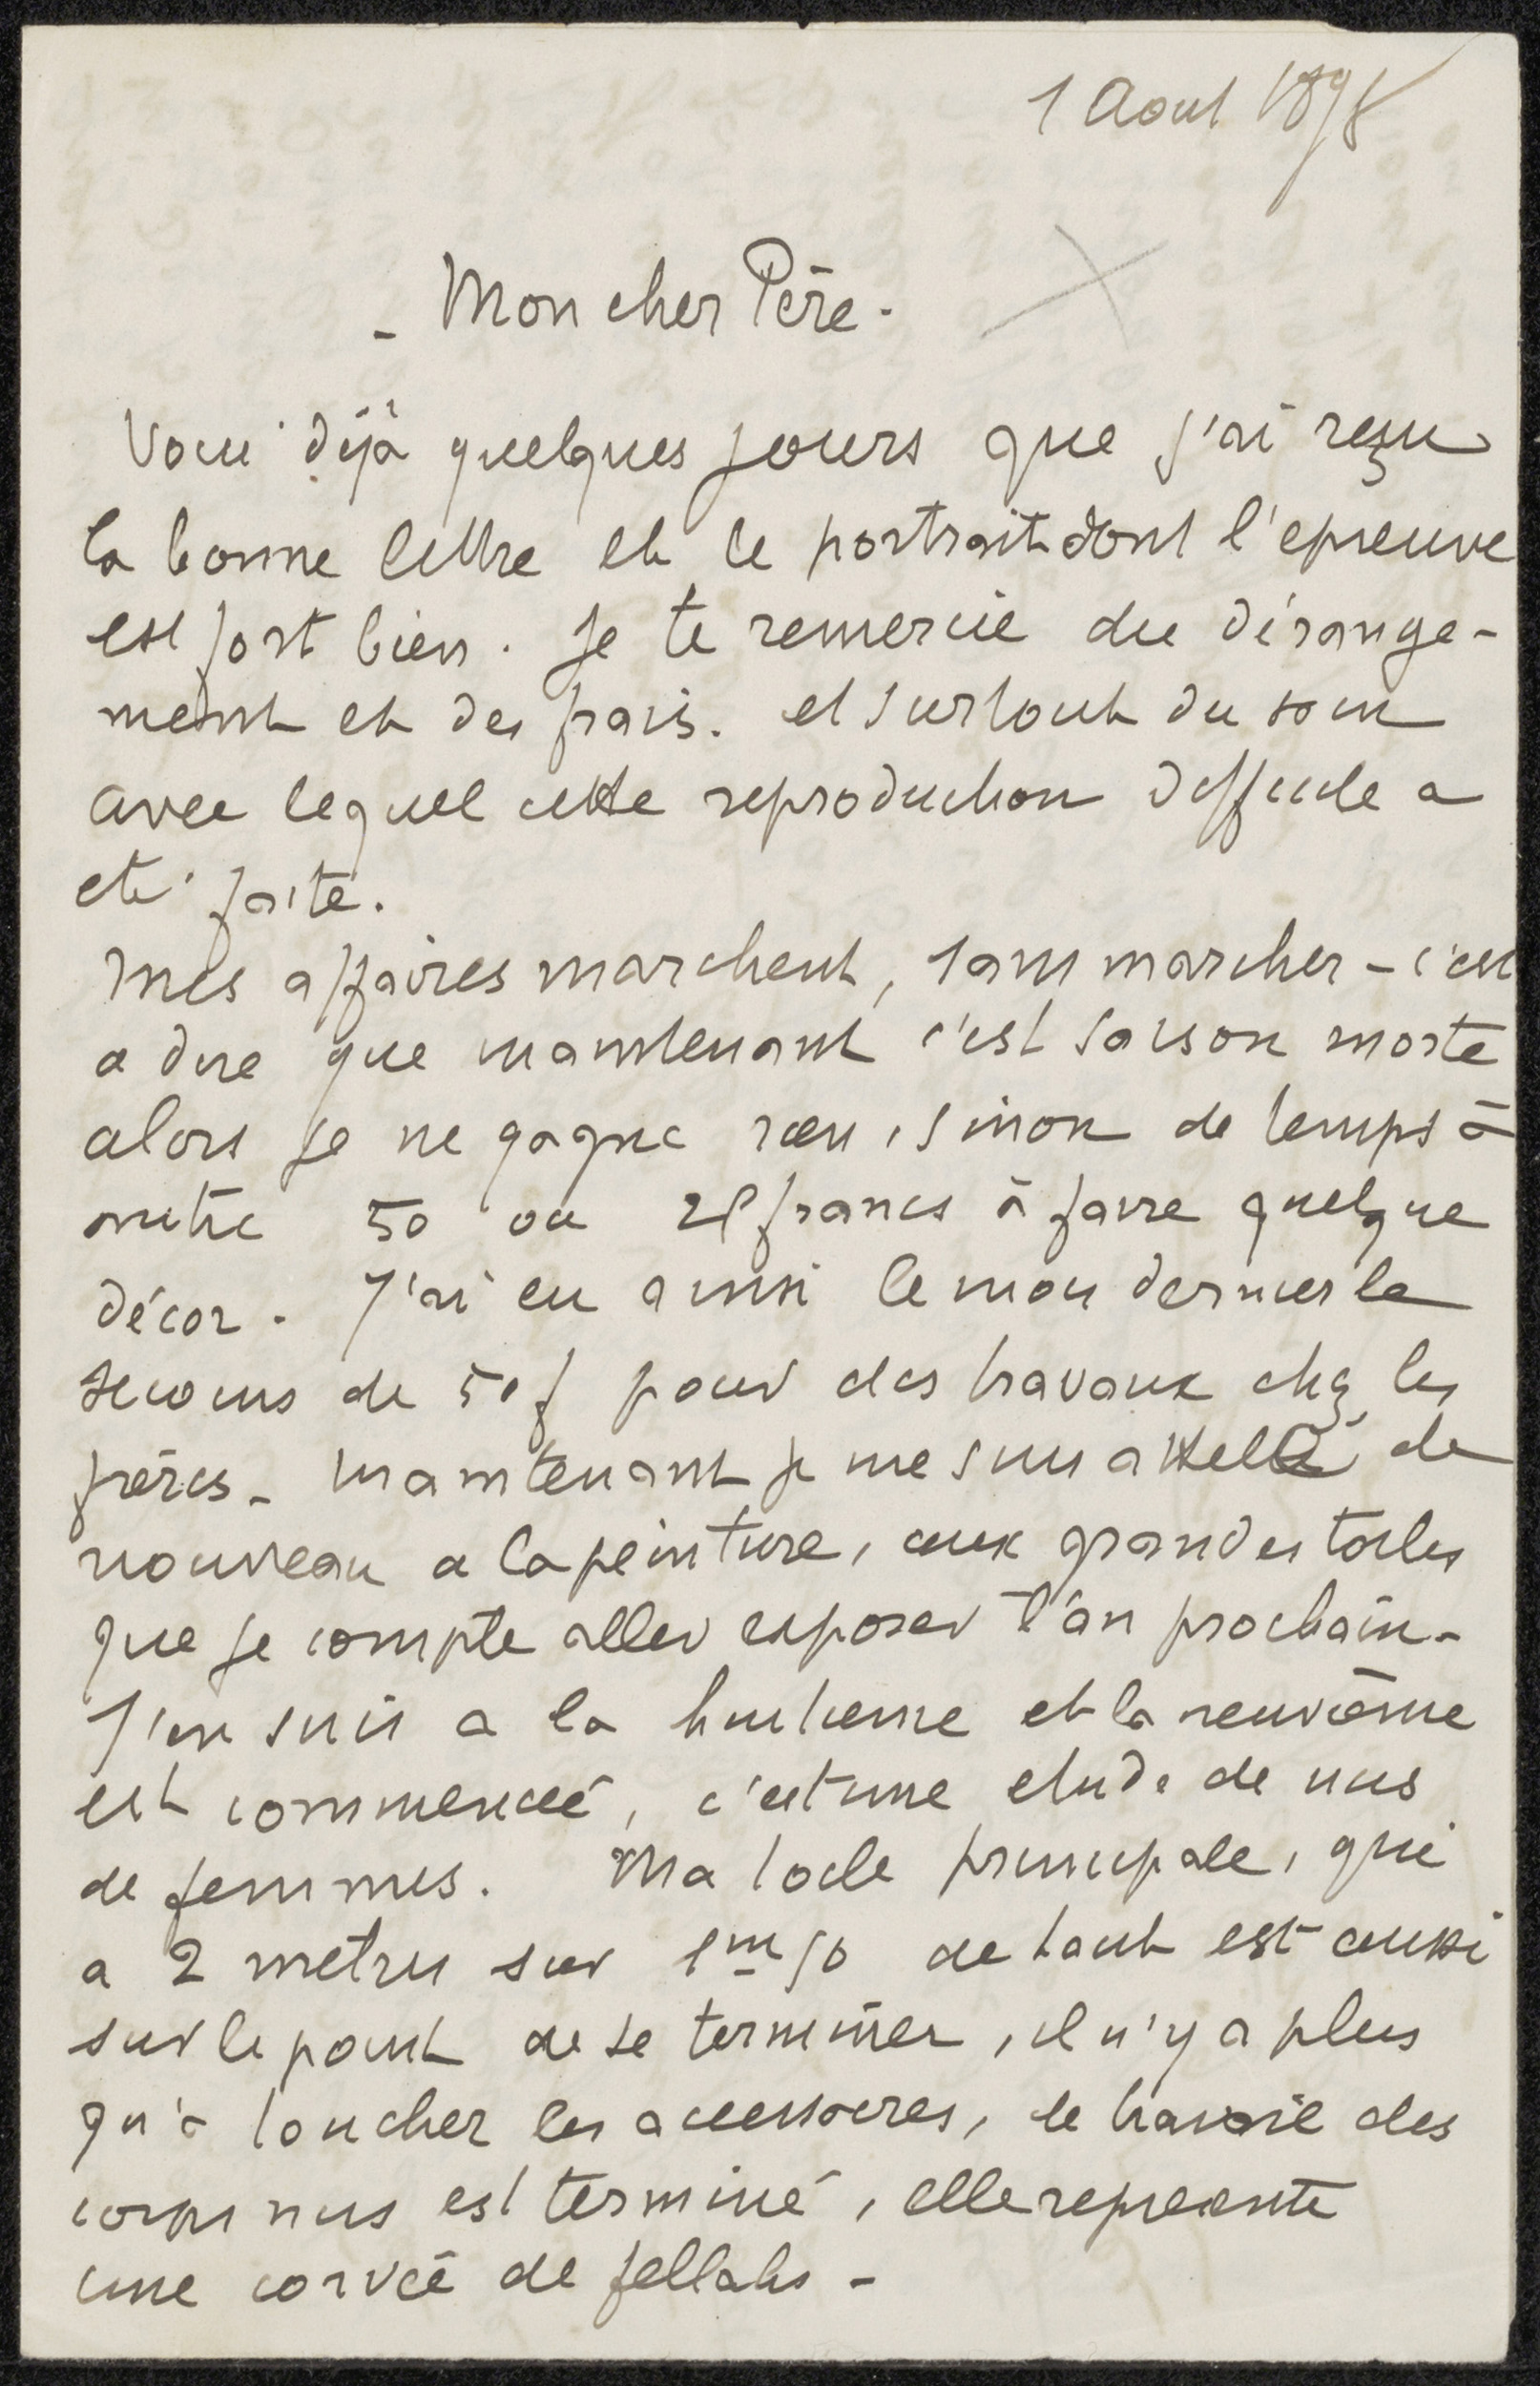 1 Aout 1898
- Mon cher Père -
Voici déjà quelques jours que j'ai reçu
ta bonne lettre et le portrait dont l'epreuve
est fort bien. Je te remercie du dérange-
ment et des frais. et surtout du soin
avec lequel cette reproduction difficile a
eté faite.
Mes affaires marchent, sans marcher - c'est
a dire que maintenant c'est saison morte
alors je ne gagne rien, sinon de temps à
autre 50 ou francs à faire quelque
décor. J'ai eu ainsi le mois dernier le
secours de 50f pour des travaux chez les
frères - maintenant je me suis attelé de
nouveau a la peinture, aux grandes toiles
que je compte aller exposer l'an prochain -
J'en suis a la huitieme et la neuvième
est commencée, c'est une etude de nus
de femmes. Ma toile principale, qui
a 2 metres sur 1m50 de haut est aussi
sur le point de se terminer, il n'y a plus
qu'à toucher les accessoires, le travail des
corps nus est terminé, elle represente
une corvée de fellahs -